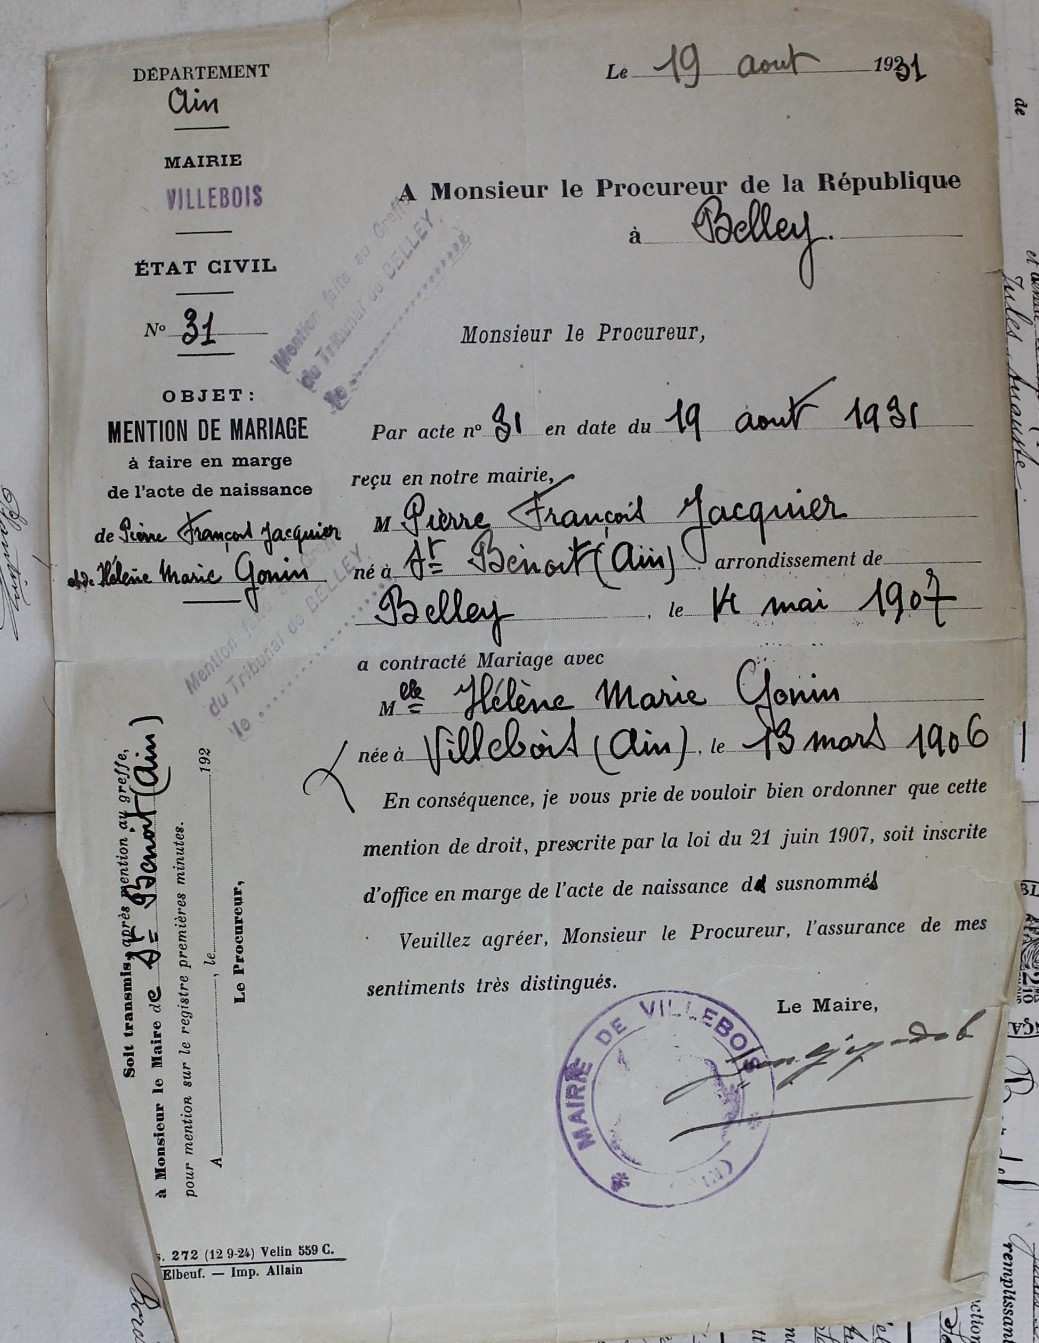 DÉPARTEMENT
Ain
MAIRIE
VILLEBOIS
ÉTAT CIVIL
No 31
OBJET :
MENTION DE MARIAGE
à faire en marge
de l'acte de naissance
de Pierre François Jacquier
et de Hélène Marie Gonin
Le 19 aout 1931
A Monsieur le Procureur de la République
à Belley.
Mention faite au Greffe
du Tribunal de BELLEY,
le
Monsieur le Procureur,
Par acte no 31 en date du 19 aout 1931
reçu en notre mairie,
M Pierre François Jacquier
né à St Benoit (Ain) arrondissement de
Belley, le 14 mai 1907
a contracté Mariage avec
Melle Hélène Marie Gonin
née à Villebois (Ain), le 13 mars 1906
En conséquence, je vous prie de vouloir bien ordonner que cette
mention de droit, prescrite par la loi du 21 juin 1907, soit inscrite
d'office en marge de l'acte de naissance des susnommés
Veuillez agréer, Monsieur le Procureur, l'assurance de mes
sentiments très distingués.
Le Maire,
MAIRIE DE VILLEBOIS
Mention faite
du Tribunal de BELLEY,
le
Soit transmis, après mention au greffe,
à Monsieur le Maire de St Benoit (Ain)
pour mention sur le registre premières minutes.
A , le 192
Le Procureur,
s. 272 (12 9-24) Velin 559 C.
Elbeuf. — Imp. Allain
de
Jules
remplissan